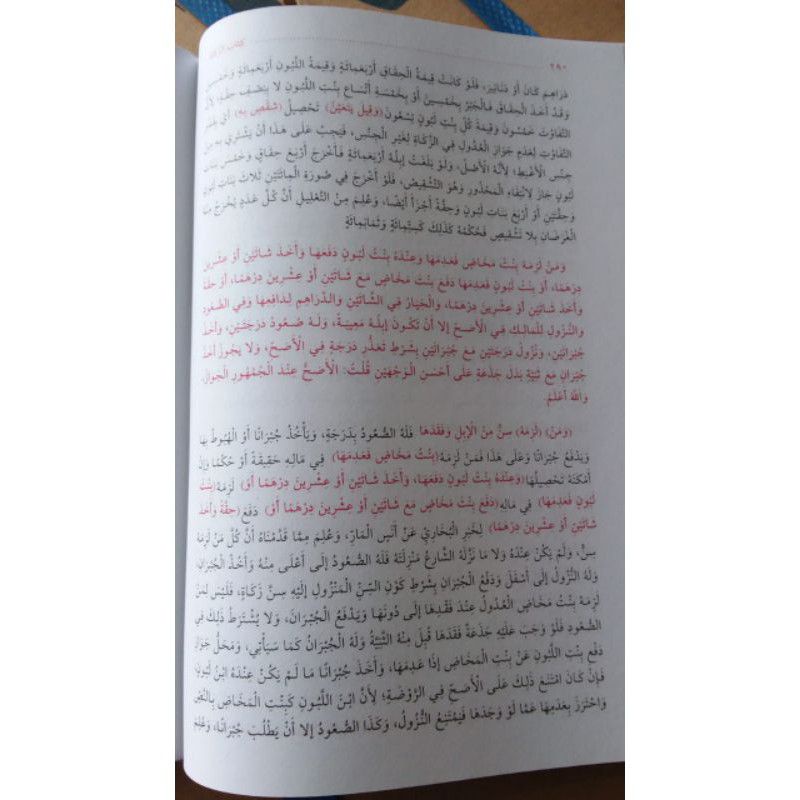 ٢٩٠ كتاب الزكاة
دَرَاهِمَ كَانَ أَوْ دَنَانِيرَ، فَلَوْ كَانَتْ قِيمَةُ الْحِقَاقِ أَرْبَعَمِائَةٍ وَقِيمَةُ اللَّبُونِ أَرْبَعَمِائَةٍ وَخَمْسِينَ
وَقَدْ أَخَذَ الْحِقَاقَ فَالْجَبْرُ بِخَمْسِينَ أَوْ بِخَمْسَةِ أَتْسَاعِ بِنْتِ اللَّبُونِ لَا بِنِصْفِ حِقَّةٍ؛ لِأَنَّ
التَّفَاوُتَ خَمْسُونَ وَقِيمَةَ كُلِّ بِنْتِ لَبُونٍ تِسْعُونَ (وَقِيلَ يَتَعَيَّنُ) تَحْصِيلُ (شِقْصٍ بِهِ) أَيْ بِقَدْرِ
التَّفَاوُتِ لِعَدَمِ جَوَازِ الْعُدُولِ فِي الزَّكَاةِ لِغَيْرِ الْجِنْسِ، فَيَجِبُ عَلَى هَذَا أَنْ يَشْتَرِيَ بِهِ مِنْ
جِنْسِ الْأَغْبَطِ؛ لِأَنَّهُ الْأَصْلُ، وَلَوْ بَلَغَتْ إِبِلُهُ أَرْبَعَمِائَةٍ فَأَخْرَجَ أَرْبَعَ حِقَاقٍ وَخَمْسَ بَنَاتِ
لَبُونٍ جَازَ لِانْتِفَاءِ الْمَحْذُورِ وَهُوَ التَّشْقِيصُ، فَلَوْ أَخْرَجَ فِي صُورَةِ الْمِائَتَيْنِ ثَلَاثَ بَنَاتِ لَبُونٍ
وَحِقَّتَيْنِ أَوْ أَرْبَعَ بَنَاتِ لَبُونٍ وَحِقَّةً أَجْزَأَ أَيْضًا، وَعُلِمَ مِنْ التَّعْلِيلِ أَنَّ كُلَّ عَدَدٍ يُخْرَجُ مِنْهُ
الْفَرْضَانِ بِلَا تَشْقِيصٍ فَحُكْمُهُ كَذَلِكَ كَسِتِّمِائَةٍ وَثَمَانِمِائَةٍ
وَمَنْ لَزِمَهُ بِنْتُ مَخَاضٍ فَعَدِمَهَا وَعِنْدَهُ بِنْتُ لَبُونٍ دَفَعَهَا وَأَخَذَ شَاتَيْنِ أَوْ عِشْرِينَ
دِرْهَمًا، أَوْ بِنْتُ لَبُونٍ فَعَدِمَهَا دَفَعَ بِنْتَ مَخَاضٍ مَعَ شَاتَيْنِ أَوْ عِشْرِينَ دِرْهَمًا، أَوْ حِقَّةً
وَأَخَذَ شَاتَيْنِ أَوْ عِشْرِينَ دِرْهَمًا، وَالْخِيَارُ فِي الشَّاتَيْنِ وَالدَّرَاهِمِ لِدَافِعِهَا وَفِي الصُّعُودِ
وَالنُّزُولِ لِلْمَالِكِ فِي الْأَصَحِّ إلَّا أَنْ تَكُونَ إبِلُهُ مَعِيبَةً، وَلَهُ صُعُودُ دَرَجَتَيْنِ، وَأَخْذُ
جُبْرَانَيْنِ، وَنُزُولُ دَرَجَتَيْنِ مَعَ جُبْرَانَيْنِ بِشَرْطِ تَعَذُّرِ دَرَجَةٍ فِي الْأَصَحِّ، وَلَا يَجُوزُ أَخْذُ
جُبْرَانٍ مَعَ ثَنِيَّةٍ بَدَلَ جَذَعَةٍ عَلَى أَحْسَنِ الْوَجْهَيْنِ قُلْتُ: الْأَصَحُّ عِنْدَ الْجُمْهُورِ الْجَوَازُ،
وَاللَّهُ أَعْلَمُ.
(وَمَنْ) (لَزِمَهُ) سِنٌّ مِنْ الْإِبِلِ وَفَقَدَهَا فَلَهُ الصُّعُودُ بِدَرَجَةٍ، وَيَأْخُذُ جُبْرَانًا أَوْ الْهُبُوطُ بِهَا
وَيَدْفَعُ جُبْرَانًا وَعَلَى هَذَا فَمَنْ لَزِمَهُ (بِنْتُ مَخَاضٍ فَعَدِمَهَا) فِي مَالِهِ حَقِيقَةً أَوْ حُكْمًا وَإِنْ
أَمْكَنَهُ تَحْصِيلُهَا (وَعِنْدَهُ بِنْتُ لَبُونٍ دَفَعَهَا، وَأَخَذَ شَاتَيْنِ أَوْ عِشْرِينَ دِرْهَمًا أَوْ) لَزِمَهُ (بِنْتُ
لَبُونٍ فَعَدِمَهَا) فِي مَالِهِ (دَفَعَ بِنْتَ مَخَاضٍ مَعَ شَاتَيْنِ أَوْ عِشْرِينَ دِرْهَمًا أَوْ) دَفَعَ (حِقَّةً وَأَخَذَ
شَاتَيْنِ أَوْ عِشْرِينَ دِرْهَمًا) لِخَبَرِ الْبُخَارِيِّ عَنْ أَنَسٍ الْمَارِّ، وَعُلِمَ مِمَّا قَدَّمْنَاهُ أَنَّ كُلَّ مَنْ لَزِمَهُ
سِنٌّ، وَلَمْ يَكُنْ عِنْدَهُ وَلَا مَا نَزَّلَهُ الشَّارِعُ مَنْزِلَتَهُ فَلَهُ الصُّعُودُ إلَى أَعْلَى مِنْهُ وَأَخْذُ الْجُبْرَانِ،
وَلَهُ النُّزُولُ إلَى أَسْفَلَ وَدَفْعُ الْجُبْرَانِ بِشَرْطِ كَوْنِ السِّنِّ الْمَنْزُولِ إلَيْهِ سِنَّ زَكَاةٍ، فَلَيْسَ لِمَنْ
لَزِمَهُ بِنْتُ مَخَاضٍ الْعُدُولُ عِنْدَ فَقْدِهَا إلَى دُونَهَا وَيَدْفَعُ الْجُبْرَانَ، وَلَا يُشْتَرَطُ ذَلِكَ فِي
الصُّعُودِ فَلَوْ وَجَبَ عَلَيْهِ جَذَعَةٌ فَقَدَهَا قُبِلَ مِنْهُ الثَّنِيَّةُ وَلَهُ الْجُبْرَانُ كَمَا سَيَأْتِي، وَمَحَلُّ جَوَازِ
دَفْعِ بِنْتِ اللَّبُونِ عَنْ بِنْتِ الْمَخَاضِ إذَا عَدِمَهَا، وَأَخَذَ جُبْرَانًا مَا لَمْ يَكُنْ عِنْدَهُ ابْنُ لَبُونٍ،
فَإِنْ كَانَ امْتَنَعَ ذَلِكَ عَلَى الْأَصَحِّ فِي الرَّوْضَةِ؛ لِأَنَّ ابْنَ اللَّبُونِ كَبِنْتِ الْمَخَاضِ بِالنَّصِّ
وَاحْتَرَزَ بِعَدَمِهَا عَمَّا لَوْ وَجَدَهَا فَيَمْتَنِعُ النُّزُولُ، وَكَذَا الصُّعُودُ إلَّا أَنْ يَطْلُبَ جُبْرَانًا، وَعُلِمَ